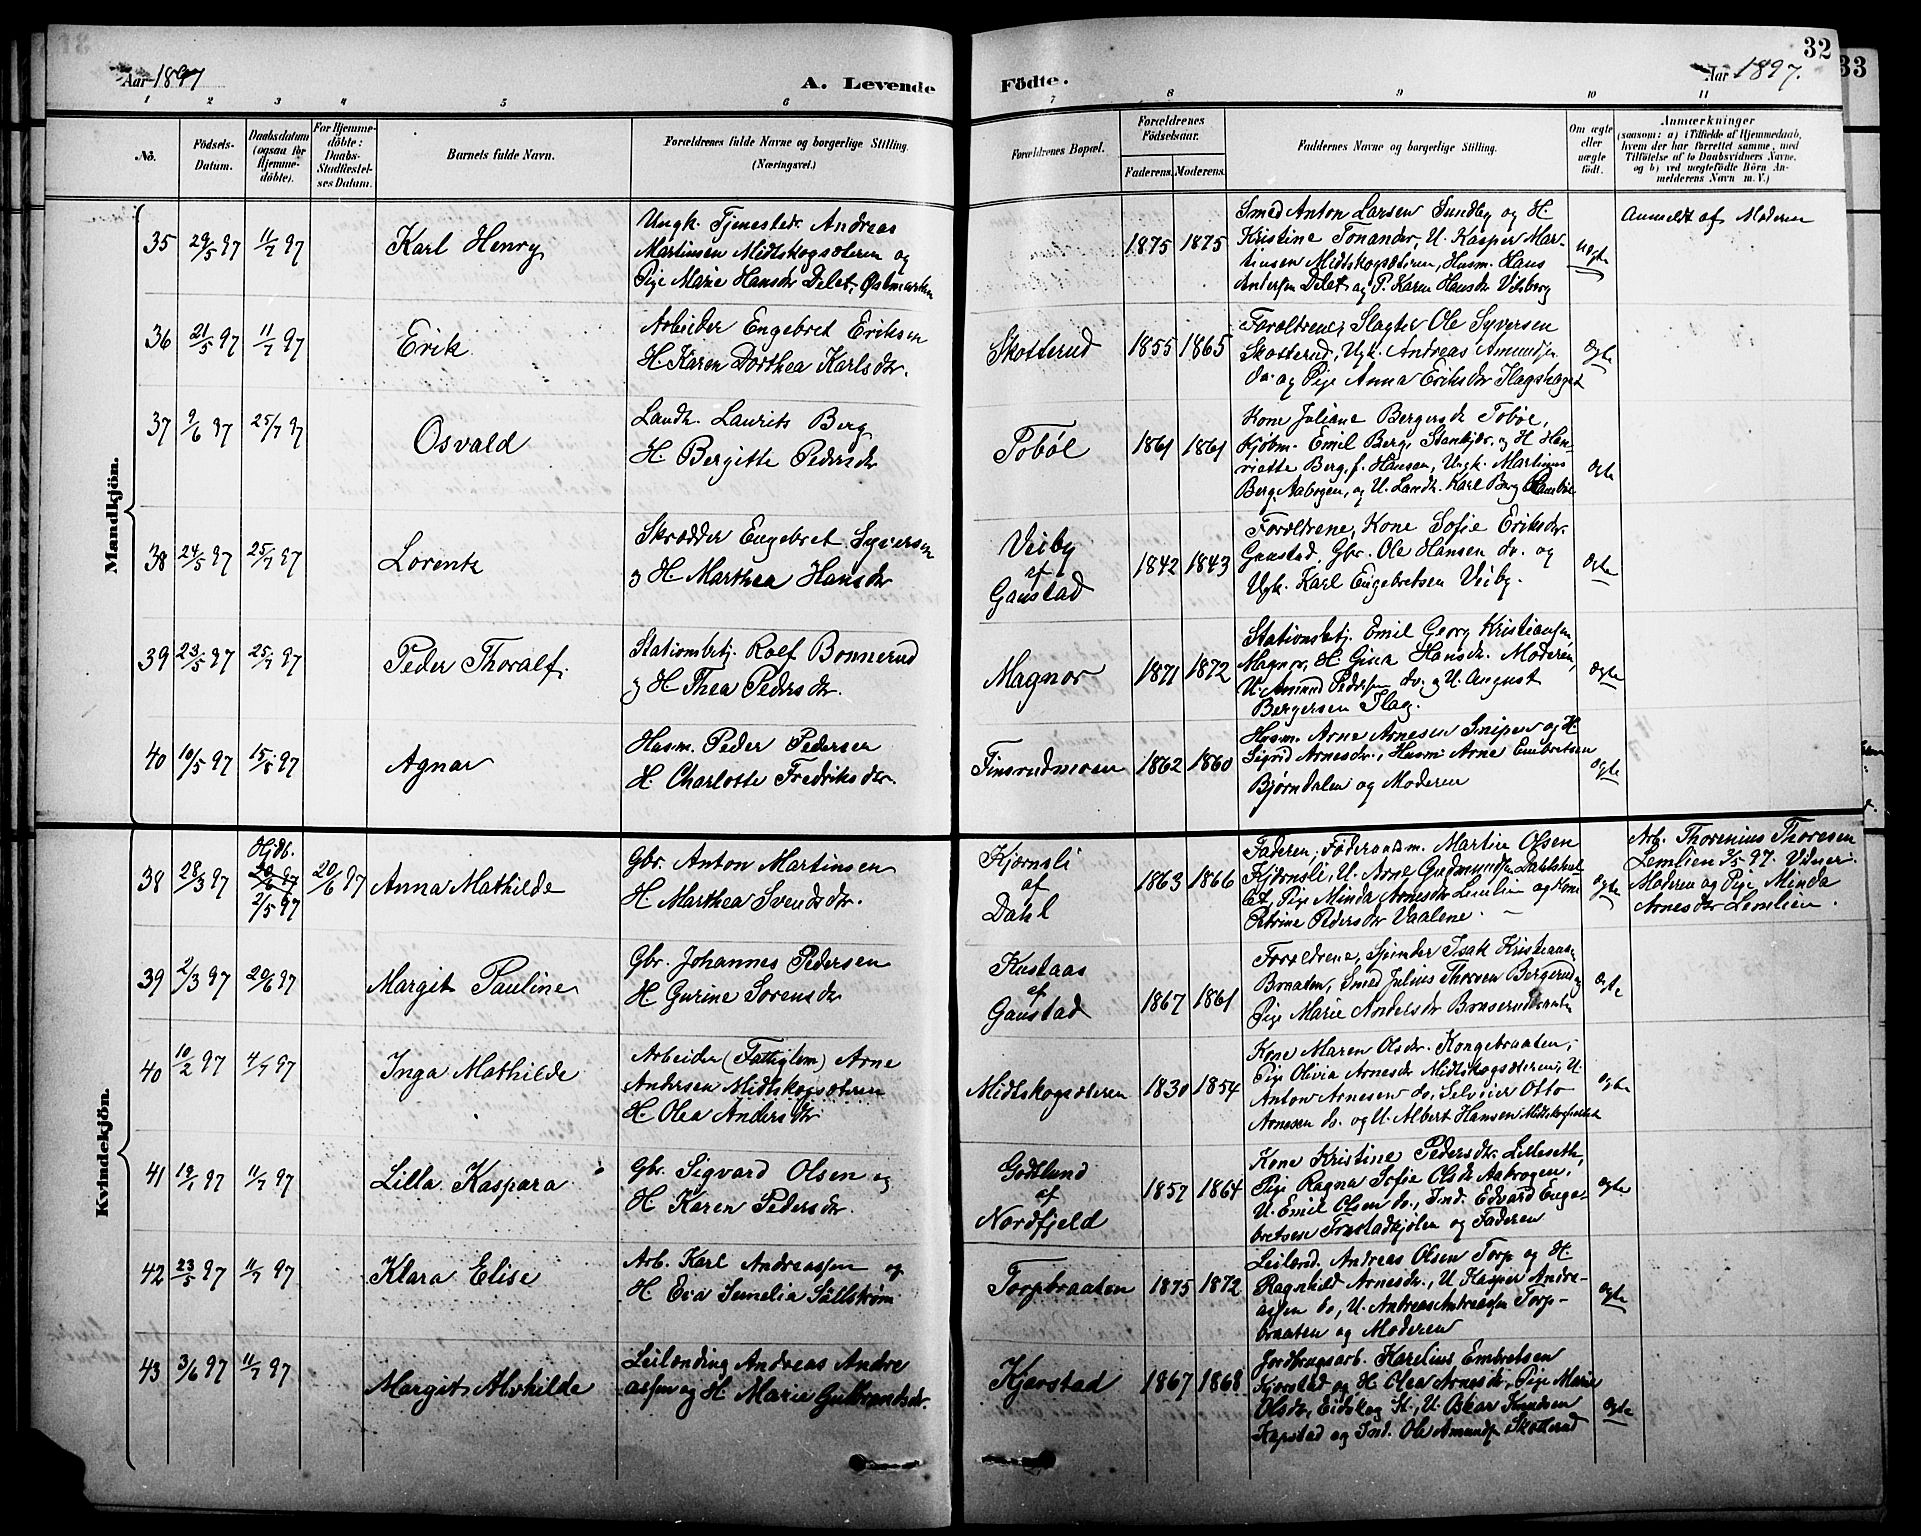 32
33
Aar 1897
A. Levende
Födte.
Aar 1897.
1 2 3 4 5 6 7 8 9 10 11
No.
Födsels-
Datum.
Daabsdatum
(ogsaa for
Hjemme-
döbte).
For Hjemme-
döbte:
Daabs-
Stadfæstel-
ses Datum.
Barnets fulde Navn.
Forældrenes fulde Navne og borgerlige Stilling.
(Næringsvei.)
Forældrenes Bopæl.
Forældrenes
Födselsaar.
Faderens. Moderens.
Faddernes Navne og borgerlige Stilling.
Om ægte
eller
uægte
födt.
Anmærkninger
(saasom: a) i Tilfælde af Hjemmedaab,
hvem der har forrettet samme, med
Tilföielse af to Daabsvidners Navne,
og b) ved uægtefödte Börn An-
melderens Navn m. V.)
Mandkjön.
35 29/5 97 11/7 97
Karl Henry
Ungk. Tjenestedr. Andreas
Martinsen Midtskogsæteren og
Pige Marie Hansdr Delet, Østmarken
1875 1875
Smed Anton Larsen Sundby og H.
Kristine Tonandr, U. Kasper Mar-
tinsen Midtskogsæteren, Husm. Hans
Andersen Delet og P. Karen Hansdr Vikberg
uægte
Anmeldt af Moderen
36 21/5 97 11/7 97
Erik
Arbeider Engebret Eriksen
H. Karen Dorthea Karlsdr.
Skotterud
1855 1865
Forældrene, Slagter Ole Syversen
Skotterud, Ugk. Andreas Amundsen
do. og Pige Anna Eriksdr Flagshaget
ægte
37 9/6 97 25/7 97
Osvald
Landh. Laurits Berg
H. Bergitte Pedersdr
Tobøl
1861 1861
Kone Juliane Bergersdr Tobøl,
Kjøbm. Emil Berg, Stenkjær, og H. Hen-
riette Berg, f. Hansen, Ungk. Martinus
Berg, Aabogen, og U. Landh. Karl Berg
ægte
38 24/5 97 25/7 97
Lorentz
Skrædder Engebret Syversen
og H. Marthea Hansdr
Veiby
af
Gaustad
1842 1843
Forældrene, Kone Sofie Eriksdr.
Gaustad, Gbr. Ole Hansen do. og
Ugk. Karl Engebretsen Veiby.
ægte
39 23/5 97 25/7 97
Peder Thoralf.
Stationsbetj. Rolf Bonnerud
og H Thea Pedersdr.
Magnor
1871 1872
Stationsbetj. Emil Georg Kristiansen,
Magnor, H. Gina Hansdr. Moderen,
U. Amund Pedersen do. og U. August
Bergersen Flag.
ægte
40 10/5 97 15/8 97
Agnar
Husm. Peder Pedersen
H. Charlotte Fredriksdr.
Finsrudmoen
1862 1860
Husm. Arne Arnesen Snipen og H
Sigrid Arnesdr., Husm Arne Embretsen
Bjørndalen og Moderen
ægte
Kvindekjön.
38 28/3 97
Hjdb.
20/6 97
2/5 97
20/6 97
Anna Mathilde
Gbr. Anton Martinsen
H. Marthea Svendsdr.
Kjernsli
af
Dahl
1863 1866
Faderen, Føderaadsm. Martin Olsen
Kjernsli, U. Arne Gudmundsen
Pige Minda Arnesdr Lemlien og Kone
Petrine Pedersdr Vaalene.
ægte
Arb. Thorenius Thoresen
Lemlien 2/5 97. Vidner:
Moderen og Pige Minda
Arnesdr Lemlien.
39 2/3 97 20/6 97
Margit Pauline
Gbr. Johannes Pedersen
H. Gurine Sorensdr
Kustaas
af
Gaustad
1867 1861
Forældrene, Isak Kristiansen
Braaten, Smed Julius Thorsen Bergerud og
Pige Marie Andersdr
ægte
40 10/2 97 4/7 97
Inga Mathilde
Arbeider (Fattiglem) Arne
Andersen Midtskogsæteren
H. Olea Andersdr
Midtskogsæteren
1830 1854
Kone Maren Olsdr. Kongebraaten,
Pige Olivia Arnesdr Midtskogsæteren, U.
Anton Arnesen do, Selveier Otto
Arnesen do. og U. Albert Hansen Midtskogsæteren
ægte
41 19/1 97 11/7 97
Lilla Kaspara
Gbr. Sigvard Olsen og
H. Karen Pedersdr.
Godtlund
af
Nordfjeld
1857 1864
Kone Kristine Pedersdr. Lilleseth,
Pige Ragna Sofie Olsdr Aabogen,
U. Emil Olsen do., Ind. Edvard Enge-
bretsen og Faderen
ægte
42 23/5 97 11/7 97
Klara Elise
Arb. Karl Andreassen og
H. Eva Sällström
Torpbraaten
1875 1872
Leilænd. Andreas Olsen Torp og H.
Ragnhild Arnesdr., U Kasper Andre-
assen do, U. Andreas Andreassen Torp-
braaten og Moderen
ægte
43 3/6 97 11/7 97
Margit Alvhilde
Leilænding Andreas Andre
assen og H. Marie Gulbrandsdr.
Kjerstad
1867 1868
Jordbrugsarb. Karelius Embretsen
Kjerstad og H. Olea Arnesdr, Pige Marie
Olsdr, Eidskog St., U. Oskar Knudsen
Kapstad og Ind. Ole Amundsen Skotterud
ægte